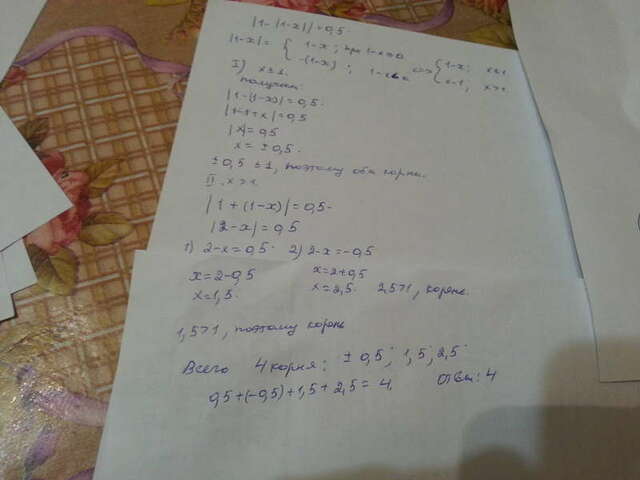 |1-|1-x||=0,5.
|1-x|= { 1-x; при 1-x≥0
-(1-x); 1-x<0 <=> { 1-x; x≤1
x-1; x>1.
I) x≤1.
получаем:
|1-(1-x)|=0,5.
|1-1+x|=0,5
|x|=0,5
x=±0,5.
±0,5 ≤1, поэтому оба корни.
II. x>1.
|1+(1-x)|=0,5.
|2-x|=0,5
1) 2-x=0,5. 2) 2-x=-0,5
x=2-0,5 x=2+0,5
x=1,5. x=2,5. 2,5>1, корень.
1,5>1, поэтому корень
Всего 4 корня: ±0,5; 1,5; 2,5.
0,5+(-0,5)+1,5+2,5=4. Ответ: 4